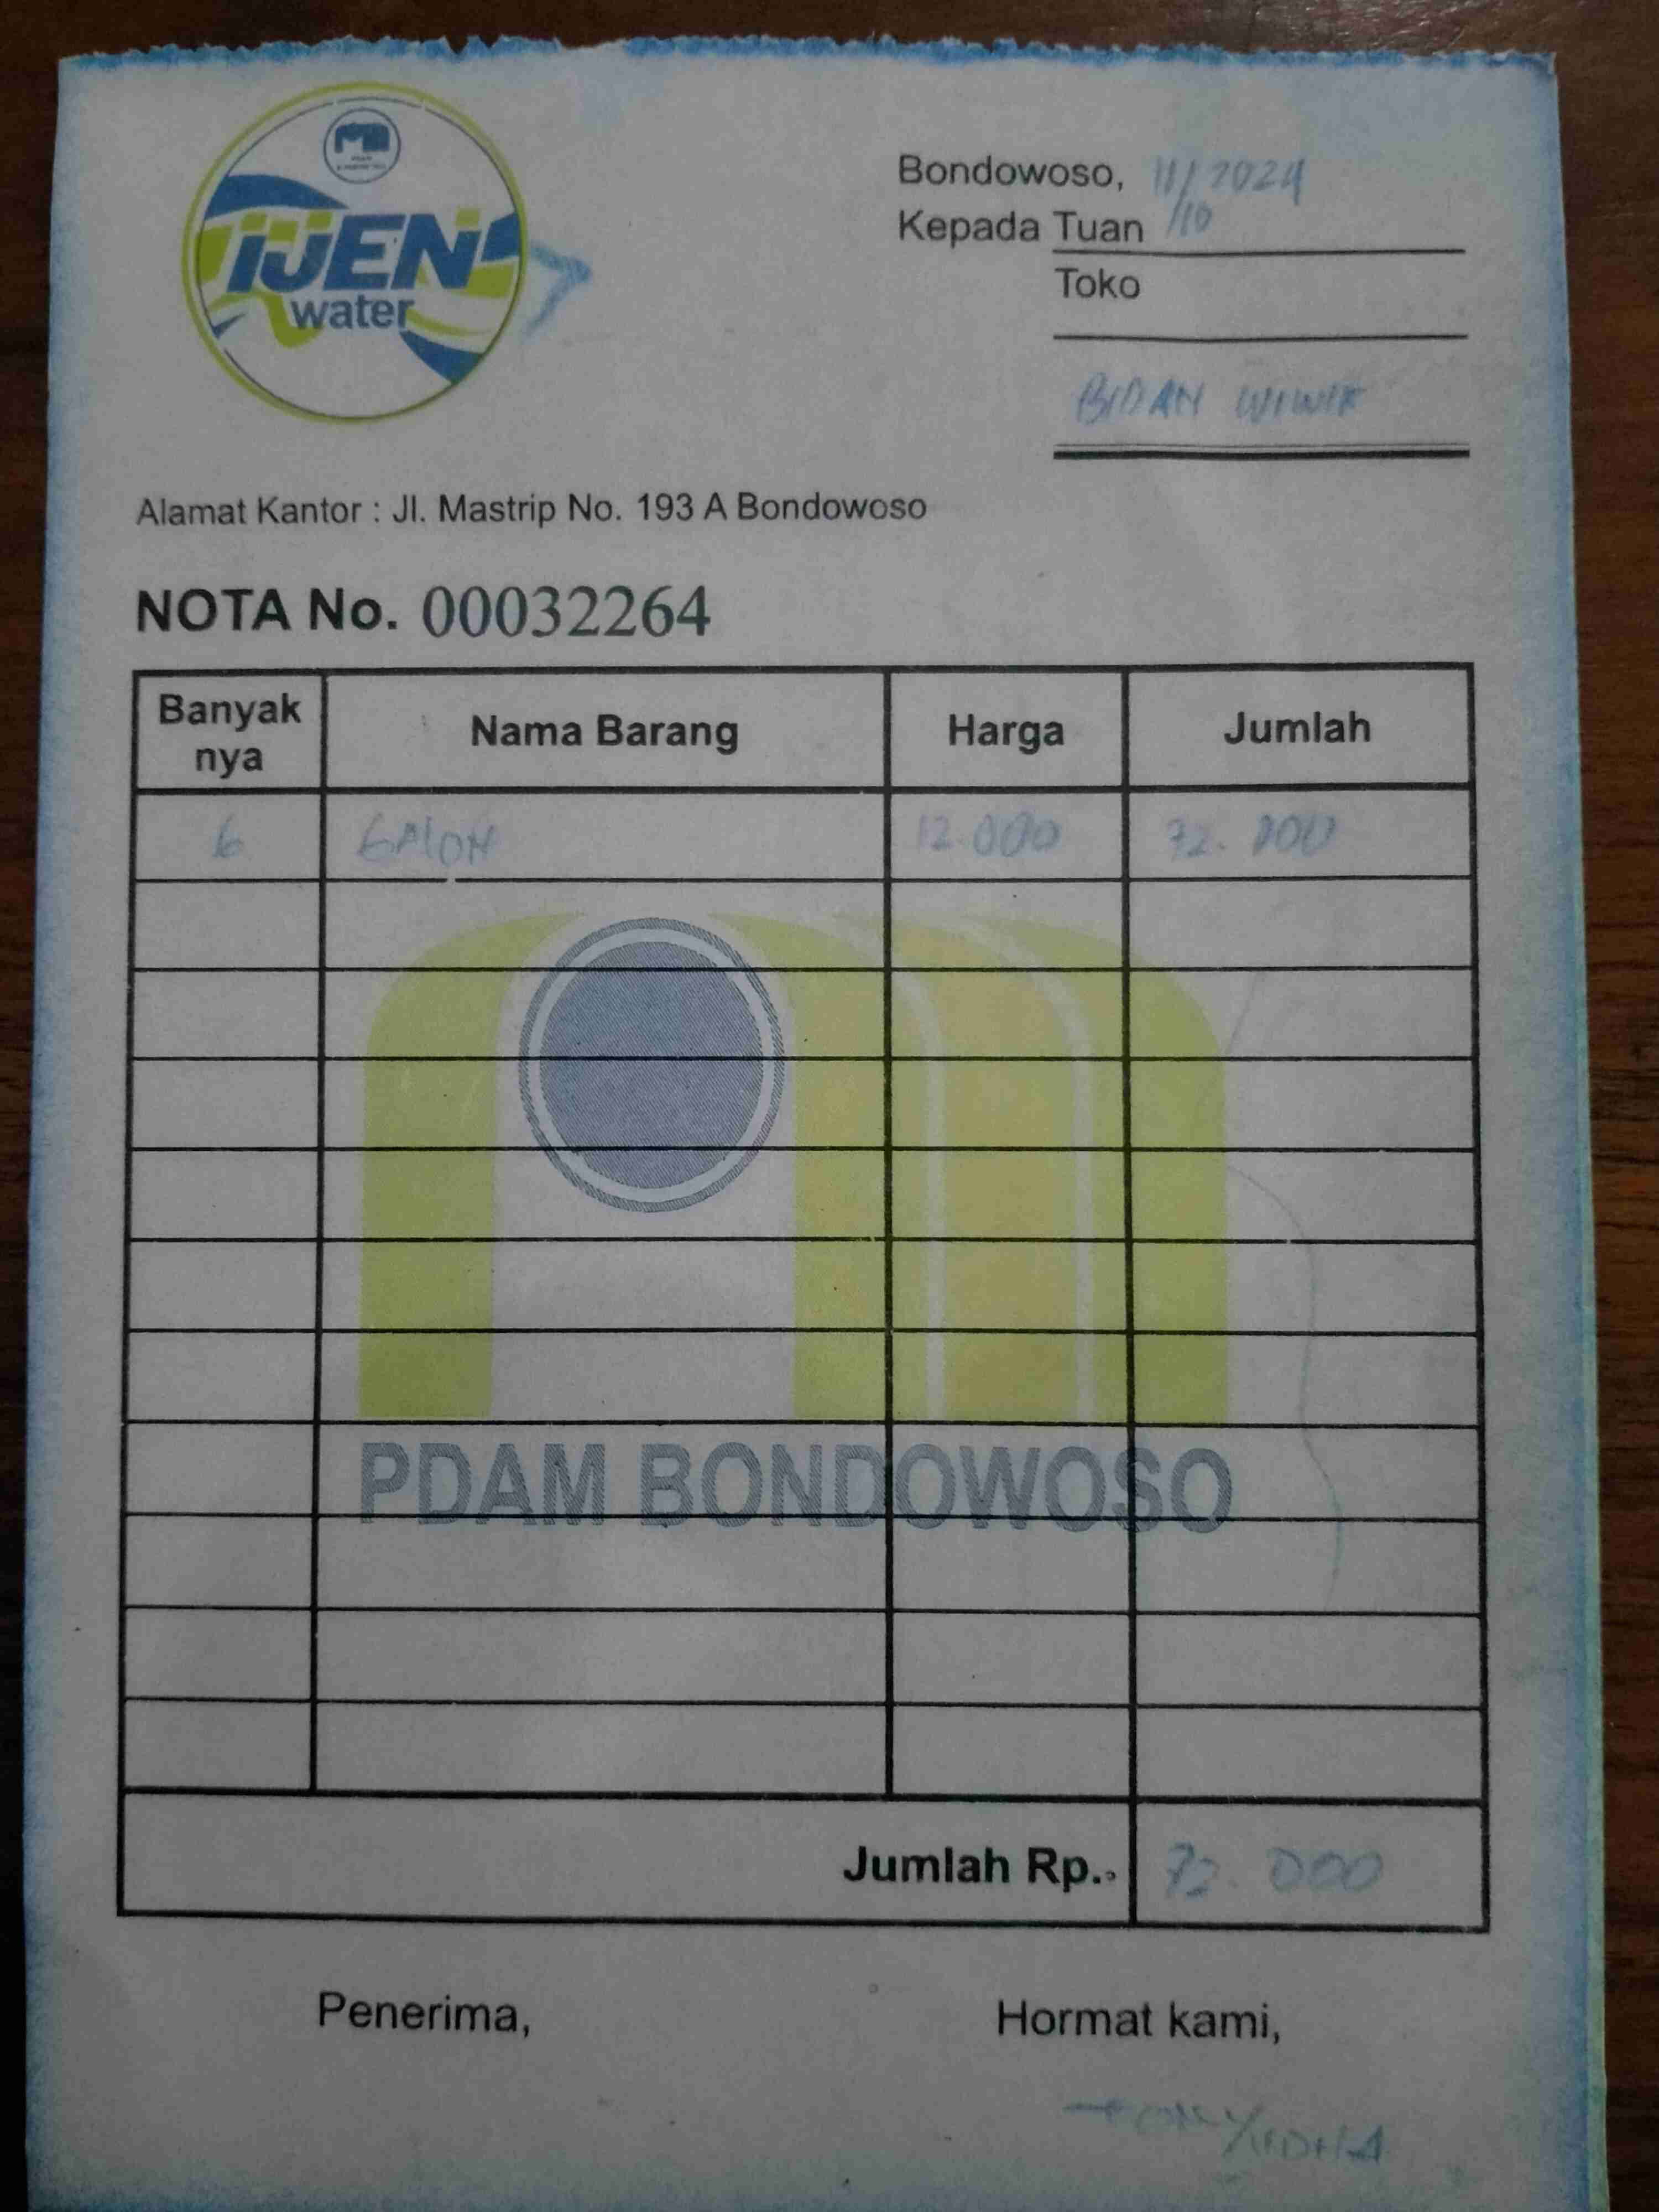 IJEN
water
Bondowoso, 11/10/2024
Kepada Tuan
Toko
BIDAN WIWIK
Alamat Kantor : Jl. Mastrip No. 193 A Bondowoso
NOTA No. 00032264
Banyak nya Nama Barang Harga Jumlah
6 GALON 12.000 72.000
PDAM BONDOWOSO
Jumlah Rp. 72.000
Penerima, Hormat kami,